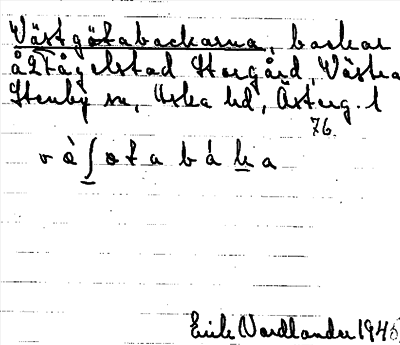 Västgötabackarna, backar
å Fågelstad Storgård, Västra
Stenby sn, Aska hd, Österg. l
76.
Erik Nordlander 1945